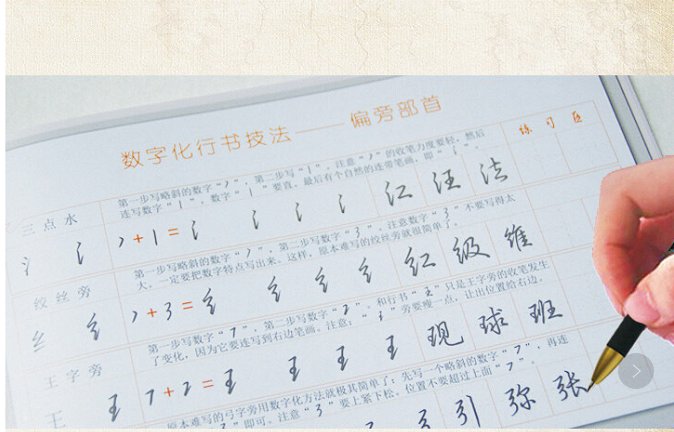 数字化行书技法——偏旁部首
练习区
三点水
第一步写略斜的数字“7”，第二步写“1”，注意“7”的收笔力度要轻，然后
连写数字“1”，数字“1”要直，最后有个自然的连带笔画，即“氵”。
氵 氵 7+1=氵 氵 氵 氵 江 汪 法
绞丝旁
第一步写略斜的数字“7”，第二步写数字“3”，注意数字“3”不要写得太
大，一定要把数字特点写出来。这样，原本难写的绞丝旁就很简单了。
纟 纟 7+3=纟 纟 纟 纟 红 级 维
王字旁
第一步写数字“7”，第二步写数字“2”。和行书“王”只是王字旁的收笔发生
了变化，因为它要连写到右边笔画。注意：“王”旁要瘦一点，让出位置给右边。
王 王 7+2=王 王 王 王 现 球 班
原本难写的弓字旁用数字化方法就极其简单了：先写一个略斜的数字“7”，再连
“3”即可。注意“3”要上紧下松，位置不要超过上面“7”。
弓 引 弥 张